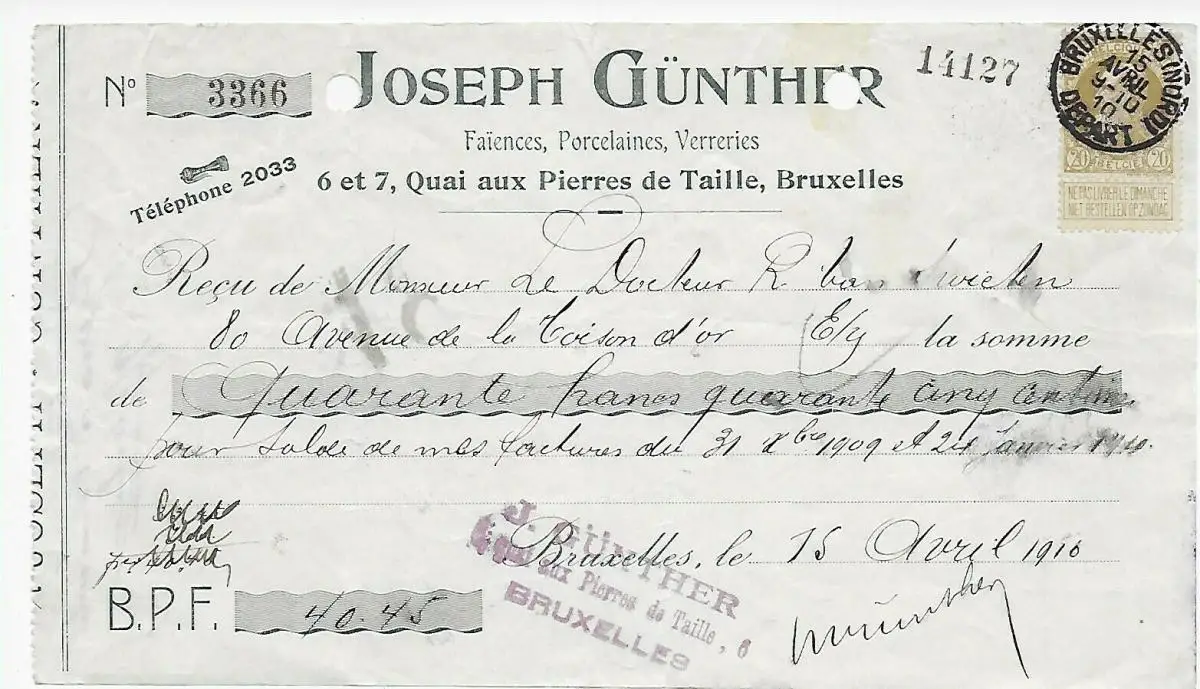 Nº 3366
JOSEPH GÜNTHER
14127
Faïences, Porcelaines, Verreries
Téléphone 2033
6 et 7, Quai aux Pierres de Taille, Bruxelles
BRUXELLES (NORD)
15
AVRIL
9-10
10
DEPART
20 BELGIË 20
NE PAS LIVRER LE DIMANCHE
NIET BESTELLEN OP ZONDAG
Reçu de Monsieur Le Docteur R. Van Swieten
80 Avenue de la Toison d'or E/y la somme
de Quarante francs quarante cinq centimes
pour solde de mes factures du 31 Xbre 1909 et 24 Janvier 1910.
Bruxelles, le 15 Avril 1910
J. GÜNTHER
aux Pierres de Taille, 6
BRUXELLES
B.P.F. 40.45
Günther